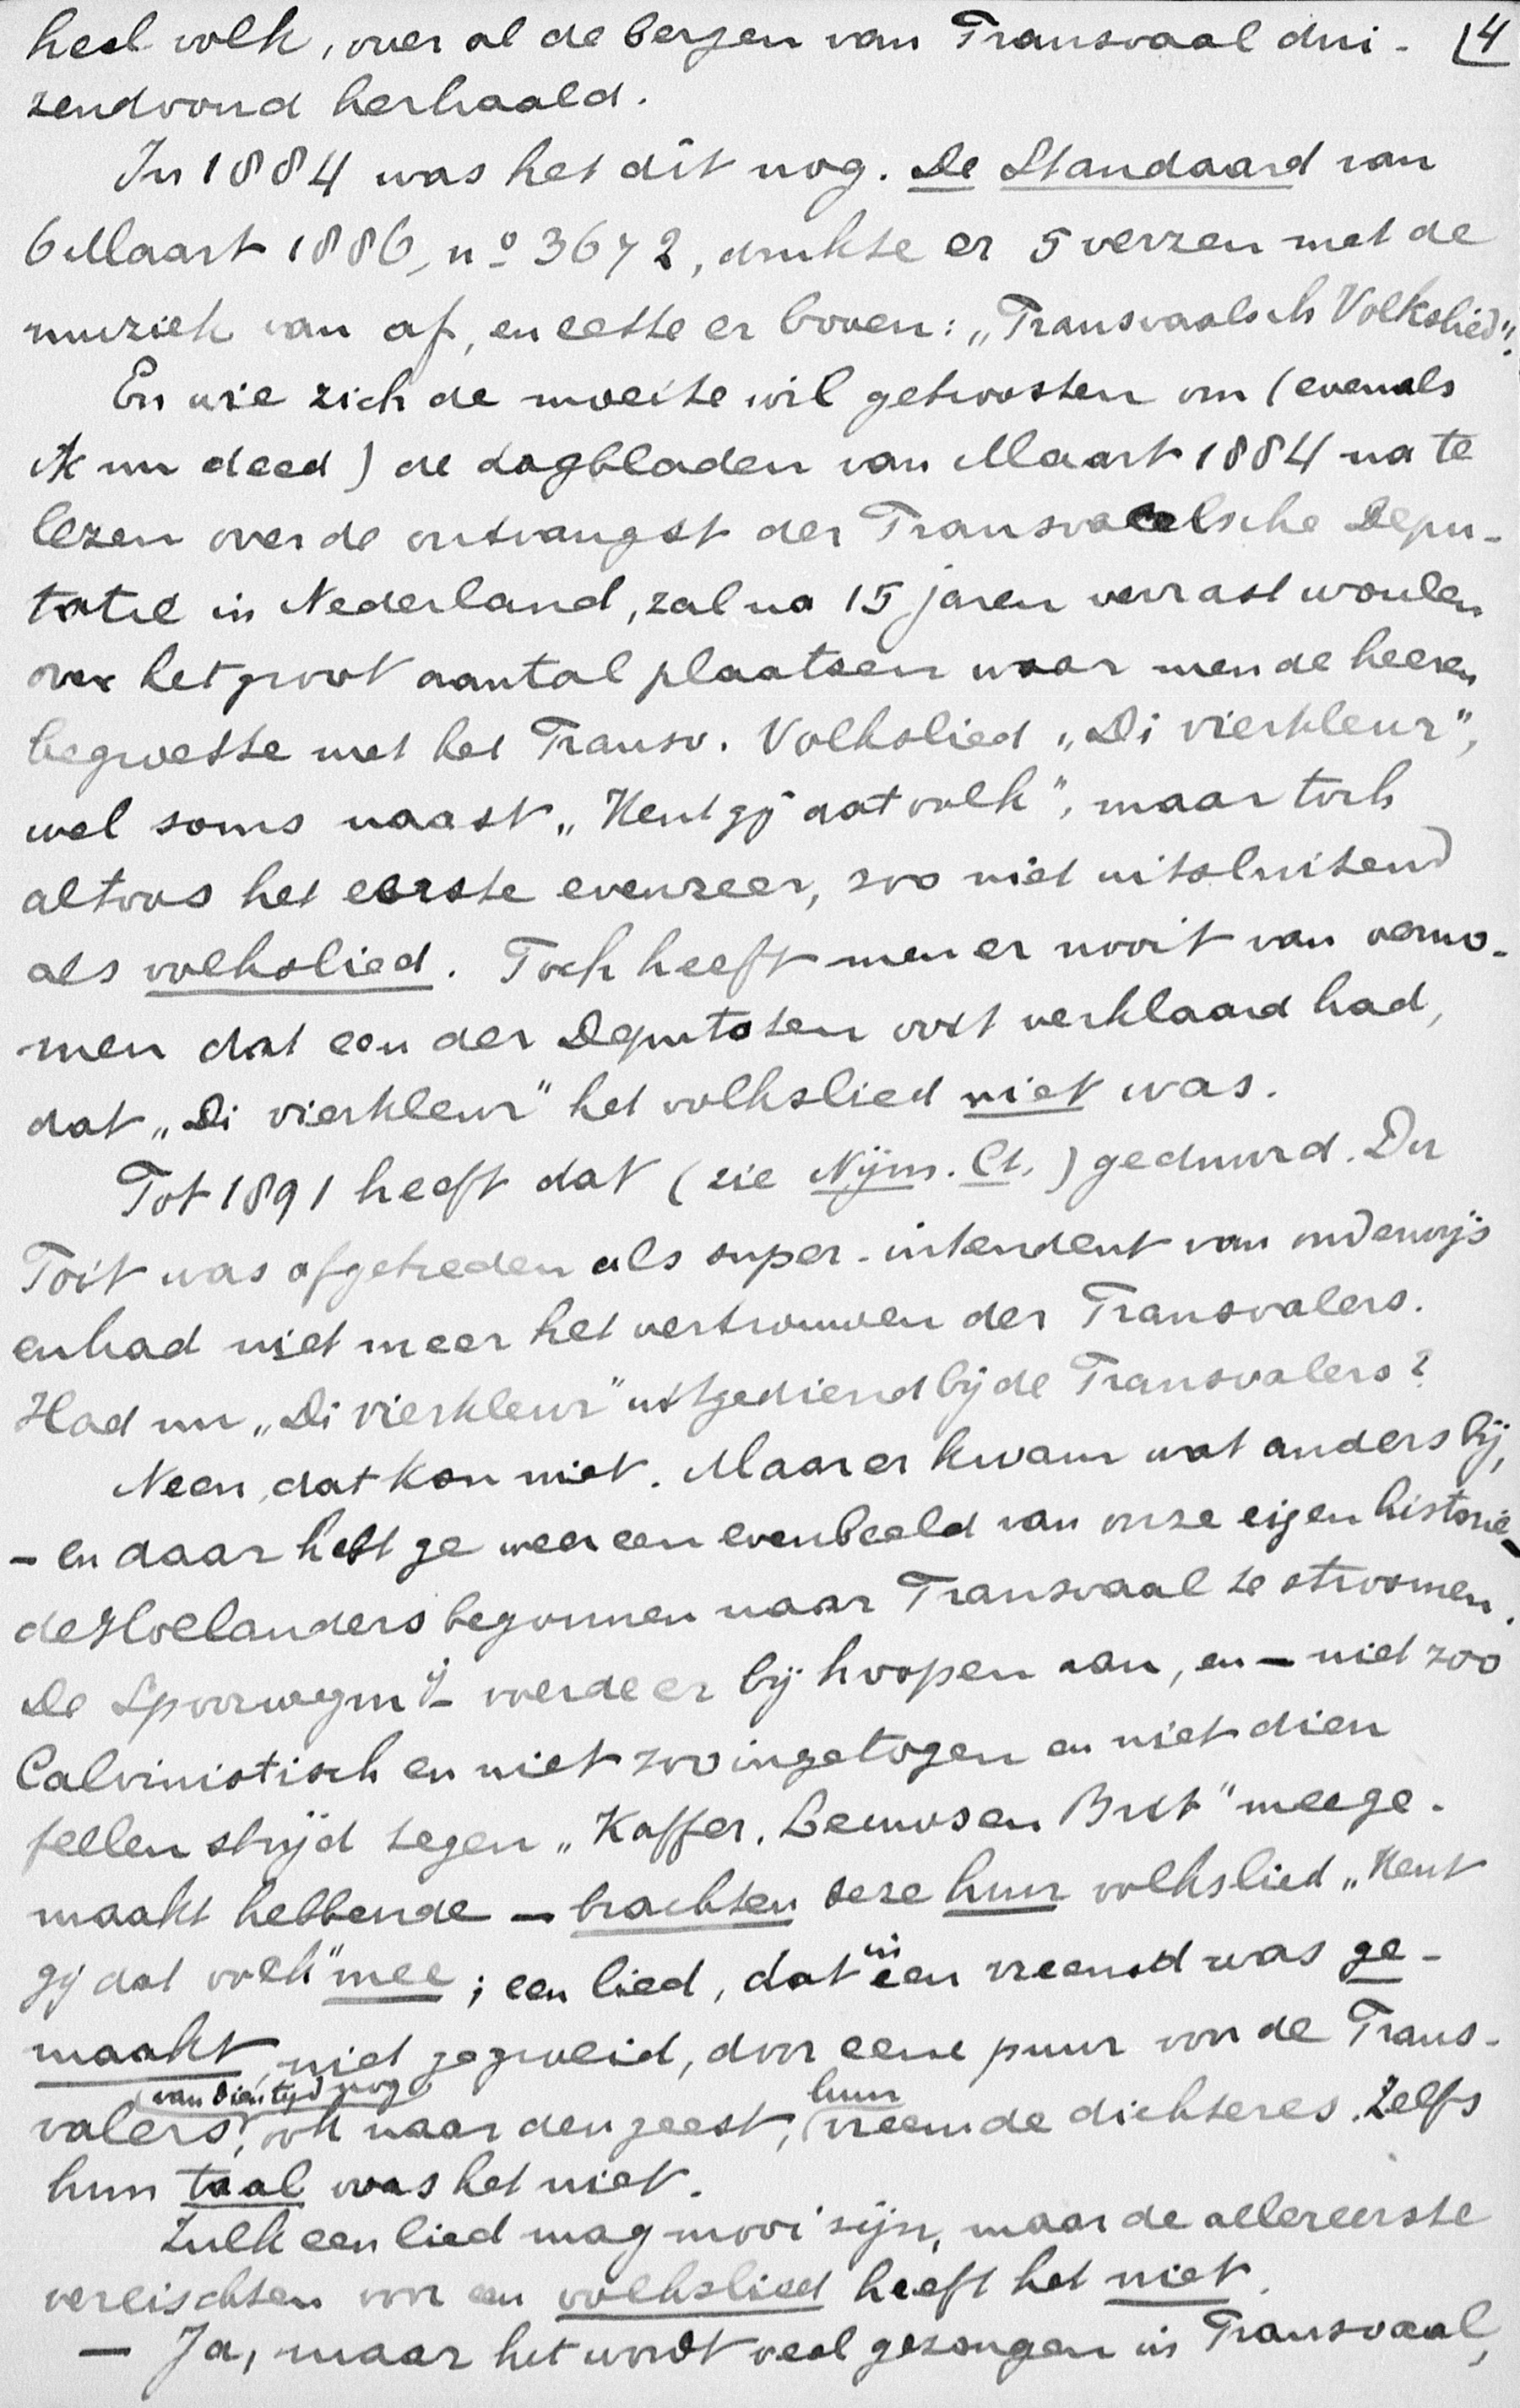 heel volk, over al de bergen van Transvaal dui- 4
zendvoud herhaald.
In 1884 was het dit nog. De Standaard van
6 Maart 1886, no 3672, drukte er 5 verzen met de
muziek van af, en zette er boven: „Transvaalsch Volkslied".
En wie zich de moeite wil getroosten om (evenals
ik nu deed) de dagbladen van Maart 1884 na te
lezen over de ontvangst der Transvaalsche Depu-
tatie in Nederland, zal na 15 jaren verrast worden
over het groot aantal plaatsen waar men de heeren
begroette met het Transv. Volkslied „Di vierkleur",
wel soms naast „Kent gij dat volk", maar toch
altoos het eerste evenzeer, zoo niet uitsluitend
als volkslied. Toch heeft men er nooit van verno-
men dat een der Deputaten ooit verklaard had,
dat „Di vierkleur" het volkslied niet was.
Tot 1891 heeft dat (zie Nijm. Ct.) geduurd. Du
Toit was afgetreden als super-intendent van onderwijs
en had niet meer het vertrouwen der Transvalers.
Had nu „Di vierkleur" uitgediend bij de Transvalers?
Neen, dat kon niet. Maar er kwam wat anders bij,
- en daar hebt ge weer een evenbeeld van onze eigen historie -
de Hollanders begonnen naar Transvaal te stroomen.
De Spoorwegmij voerde er bij hoopen aan, en - niet zoo
Calvinistisch en niet zoo ingetogen en niet dien
fellen strijd tegen „Kaffer, Leeuw en Brit" meege-
maakt hebbende - brachten deze hun volkslied „Kent
gij dat volk" mee; een lied, dat in een vreemd was ge-
maakt, niet gegroeid, door eene puur voor de Trans-
valers (van dien tijd nog), ook naar den geest, hun vreemde dichteres. Zelfs
hun taal was het niet.
Zulk een lied mag mooi zijn, maar de allereerste
vereischten voor een volkslied heeft het niet.
- Ja, maar het wordt veel gezongen in Transvaal,